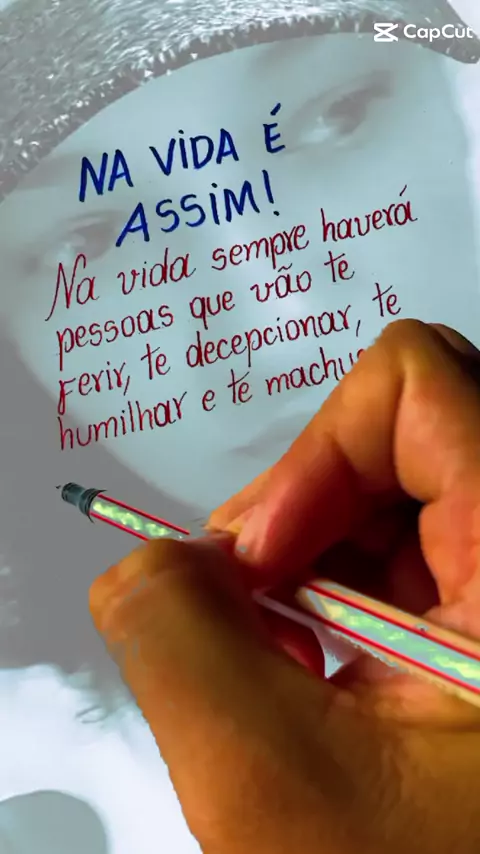 CapCut
NA VIDA É
ASSIM!
Na vida sempre haverá
pessoas que vão te
Ferir, te decepcionar, te
humilhar e te